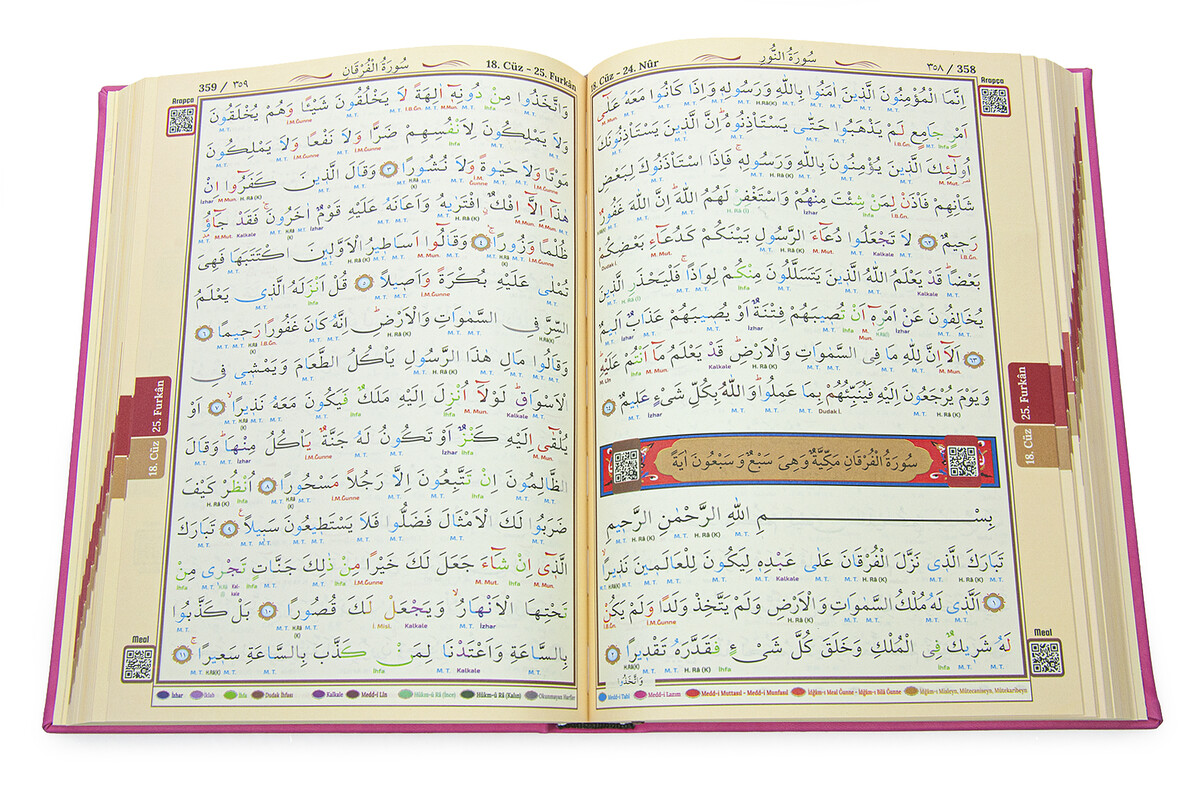 سُورَةُ النُّورِ
18. Cüz - 24. Nûr
٣٥٨ / 358
Arapça
اِنَّمَا الْمُؤْمِنُونَ الَّذِينَ اٰمَنُوا بِاللّٰهِ وَرَسُولِهِ وَاِذَا كَانُوا مَعَهُ عَلٰٓى
اَمْرٍ جَامِعٍ لَمْ يَذْهَبُوا حَتّٰى يَسْتَأْذِنُوهُ اِنَّ الَّذِينَ يَسْتَأْذِنُونَكَ
اُولٰٓئِكَ الَّذِينَ يُؤْمِنُونَ بِاللّٰهِ وَرَسُولِهِ فَاِذَا اسْتَأْذَنُوكَ لِبَعْضِ
شَأْنِهِمْ فَأْذَنْ لِمَنْ شِئْتَ مِنْهُمْ وَاسْتَغْفِرْ لَهُمُ اللّٰهَ اِنَّ اللّٰهَ غَفُورٌ
رَحِيمٌ ٦٢ لَا تَجْعَلُوا دُعَٓاءَ الرَّسُولِ بَيْنَكُمْ كَدُعَٓاءِ بَعْضِكُمْ
بَعْضًا قَدْ يَعْلَمُ اللّٰهُ الَّذِينَ يَتَسَلَّلُونَ مِنْكُمْ لِوَاذًا فَلْيَحْذَرِ الَّذِينَ
يُخَالِفُونَ عَنْ اَمْرِهِ اَنْ تُصِيبَهُمْ فِتْنَةٌ اَوْ يُصِيبَهُمْ عَذَابٌ اَلِيمٌ
٦٣ اَلَٓا اِنَّ لِلّٰهِ مَا فِى السَّمٰوَاتِ وَالْاَرْضِ قَدْ يَعْلَمُ مَٓا اَنْتُمْ عَلَيْهِ
وَيَوْمَ يُرْجَعُونَ اِلَيْهِ فَيُنَبِّئُهُمْ بِمَا عَمِلُوا وَاللّٰهُ بِكُلِّ شَىْءٍ عَلِيمٌ ٦٤
سُورَةُ الْفُرْقَانِ مَكِّيَّةٌ وَهِىَ سَبْعٌ وَسَبْعُونَ اٰيَةً
بِسْمِ اللّٰهِ الرَّحْمٰنِ الرَّحِيمِ
تَبَارَكَ الَّذِى نَزَّلَ الْفُرْقَانَ عَلٰى عَبْدِهِ لِيَكُونَ لِلْعَالَمِينَ نَذِيرًا
١ اَلَّذِى لَهُ مُلْكُ السَّمٰوَاتِ وَالْاَرْضِ وَلَمْ يَتَّخِذْ وَلَدًا وَلَمْ يَكُنْ
لَهُ شَرِيكٌ فِى الْمُلْكِ وَخَلَقَ كُلَّ شَىْءٍ فَقَدَّرَهُ تَقْدِيرًا ٢
وَاتَّخَذُوا
Meal
25. Furkân
18. Cüz
Medd-i Tabî Medd-i Lazım Medd-i Muttasıl - Medd-i Munfasıl İdğâm-ı Meal Ğunne - İdğâm-ı Bilâ Ğunne İdğâm-ı Misleyn, Mütecaniseyn, Mütekaribeyn
359 / ٣٥٩
سُورَةُ الْفُرْقَانِ
18. Cüz - 25. Furkân
Arapça
وَاتَّخَذُوا مِنْ دُونِهِ اٰلِهَةً لَا يَخْلُقُونَ شَيْـًٔا وَهُمْ يُخْلَقُونَ
وَلَا يَمْلِكُونَ لِاَنْفُسِهِمْ ضَرًّا وَلَا نَفْعًا وَلَا يَمْلِكُونَ
مَوْتًا وَلَا حَيٰوةً وَلَا نُشُورًا ٣ وَقَالَ الَّذِينَ كَفَرُٓوا اِنْ
هٰذَٓا اِلَّٓا اِفْكٌ افْتَرٰيهُ وَاَعَانَهُ عَلَيْهِ قَوْمٌ اٰخَرُونَ فَقَدْ جَٓاؤُ
ظُلْمًا وَزُورًا ٤ وَقَالُٓوا اَسَاطِيرُ الْاَوَّلِينَ اكْتَتَبَهَا فَهِىَ
تُمْلٰى عَلَيْهِ بُكْرَةً وَاَصِيلًا ٥ قُلْ اَنْزَلَهُ الَّذِى يَعْلَمُ
السِّرَّ فِى السَّمٰوَاتِ وَالْاَرْضِ اِنَّهُ كَانَ غَفُورًا رَحِيمًا ٦
وَقَالُوا مَالِ هٰذَا الرَّسُولِ يَأْكُلُ الطَّعَامَ وَيَمْشِى فِى
الْاَسْوَاقِ لَوْلَٓا اُنْزِلَ اِلَيْهِ مَلَكٌ فَيَكُونَ مَعَهُ نَذِيرًا ٧ اَوْ
يُلْقٰٓى اِلَيْهِ كَنْزٌ اَوْ تَكُونُ لَهُ جَنَّةٌ يَأْكُلُ مِنْهَا وَقَالَ
الظَّالِمُونَ اِنْ تَتَّبِعُونَ اِلَّا رَجُلًا مَسْحُورًا ٨ اُنْظُرْ كَيْفَ
ضَرَبُوا لَكَ الْاَمْثَالَ فَضَلُّوا فَلَا يَسْتَطِيعُونَ سَبِيلًا ٩ تَبَارَكَ
الَّذِٓى اِنْ شَٓاءَ جَعَلَ لَكَ خَيْرًا مِنْ ذٰلِكَ جَنَّاتٍ تَجْرِى مِنْ
تَحْتِهَا الْاَنْهَارُ وَيَجْعَلْ لَكَ قُصُورًا ١٠ بَلْ كَذَّبُوا
بِالسَّاعَةِ وَاَعْتَدْنَا لِمَنْ كَذَّبَ بِالسَّاعَةِ سَعِيرًا ١١
Meal
25. Furkân
18. Cüz
İzhar İklab İhfa Dudak İhfası Kalkale Medd-i Lîn Hükm-ü Râ (İnce) Hükm-ü Râ (Kalın) Okunmayan Harfler